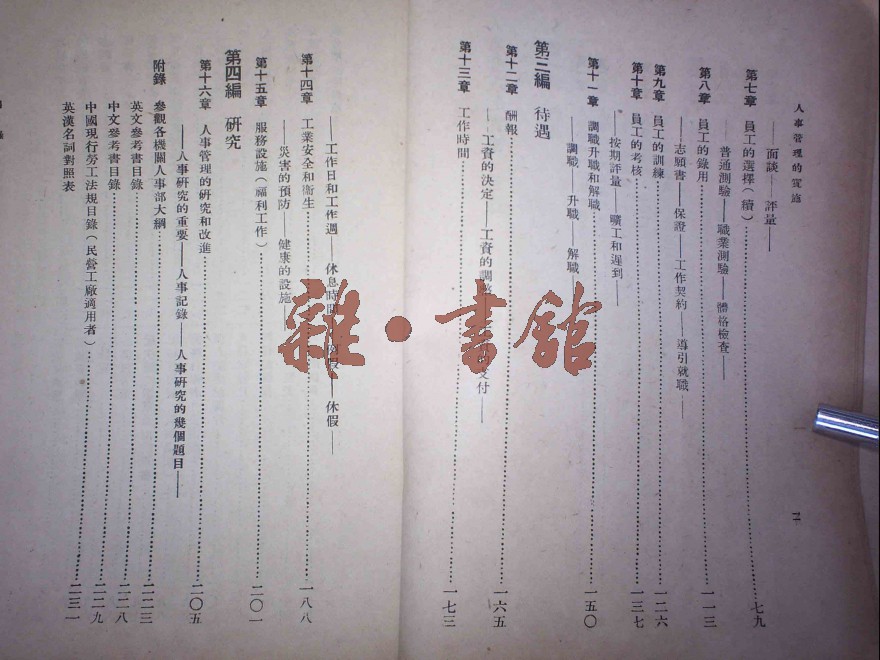 人事管理的實施
——面談——評量——
第七章 員工的選擇(續)……七九
普通測驗——職業測驗——體格檢查——
第八章 員工的錄用……一一三
——志願書——保證——工作契約——導引就職——
第九章 員工的訓練……一二六
第十章 員工的考核……一三七
——按期評量——曠工和遲到——
第十一章 調職升職和解職……一五〇
——調職——升職——解職——
第三編 待遇
第十二章 酬報……一六五
——工資的決定——工資的調整 付——
第十三章 工作時間……一七三
——工作日和工作週——休息時間 休假——
第十四章 工業安全和衞生……一八八
——災害的預防——健康的設施——
第十五章 服務設施(福利工作)……二〇一
第四編 研究
第十六章 人事管理的研究和改進……二〇五
——人事研究的重要——人事記錄——人事研究的幾個題目——
附錄 參觀各機關人事部大綱……二二三
英文參考書目錄……二二八
中文參考書目錄……二二九
中國現行勞工法規目錄(民營工廠適用者)……二三一
英漢名詞對照表
雜·書館